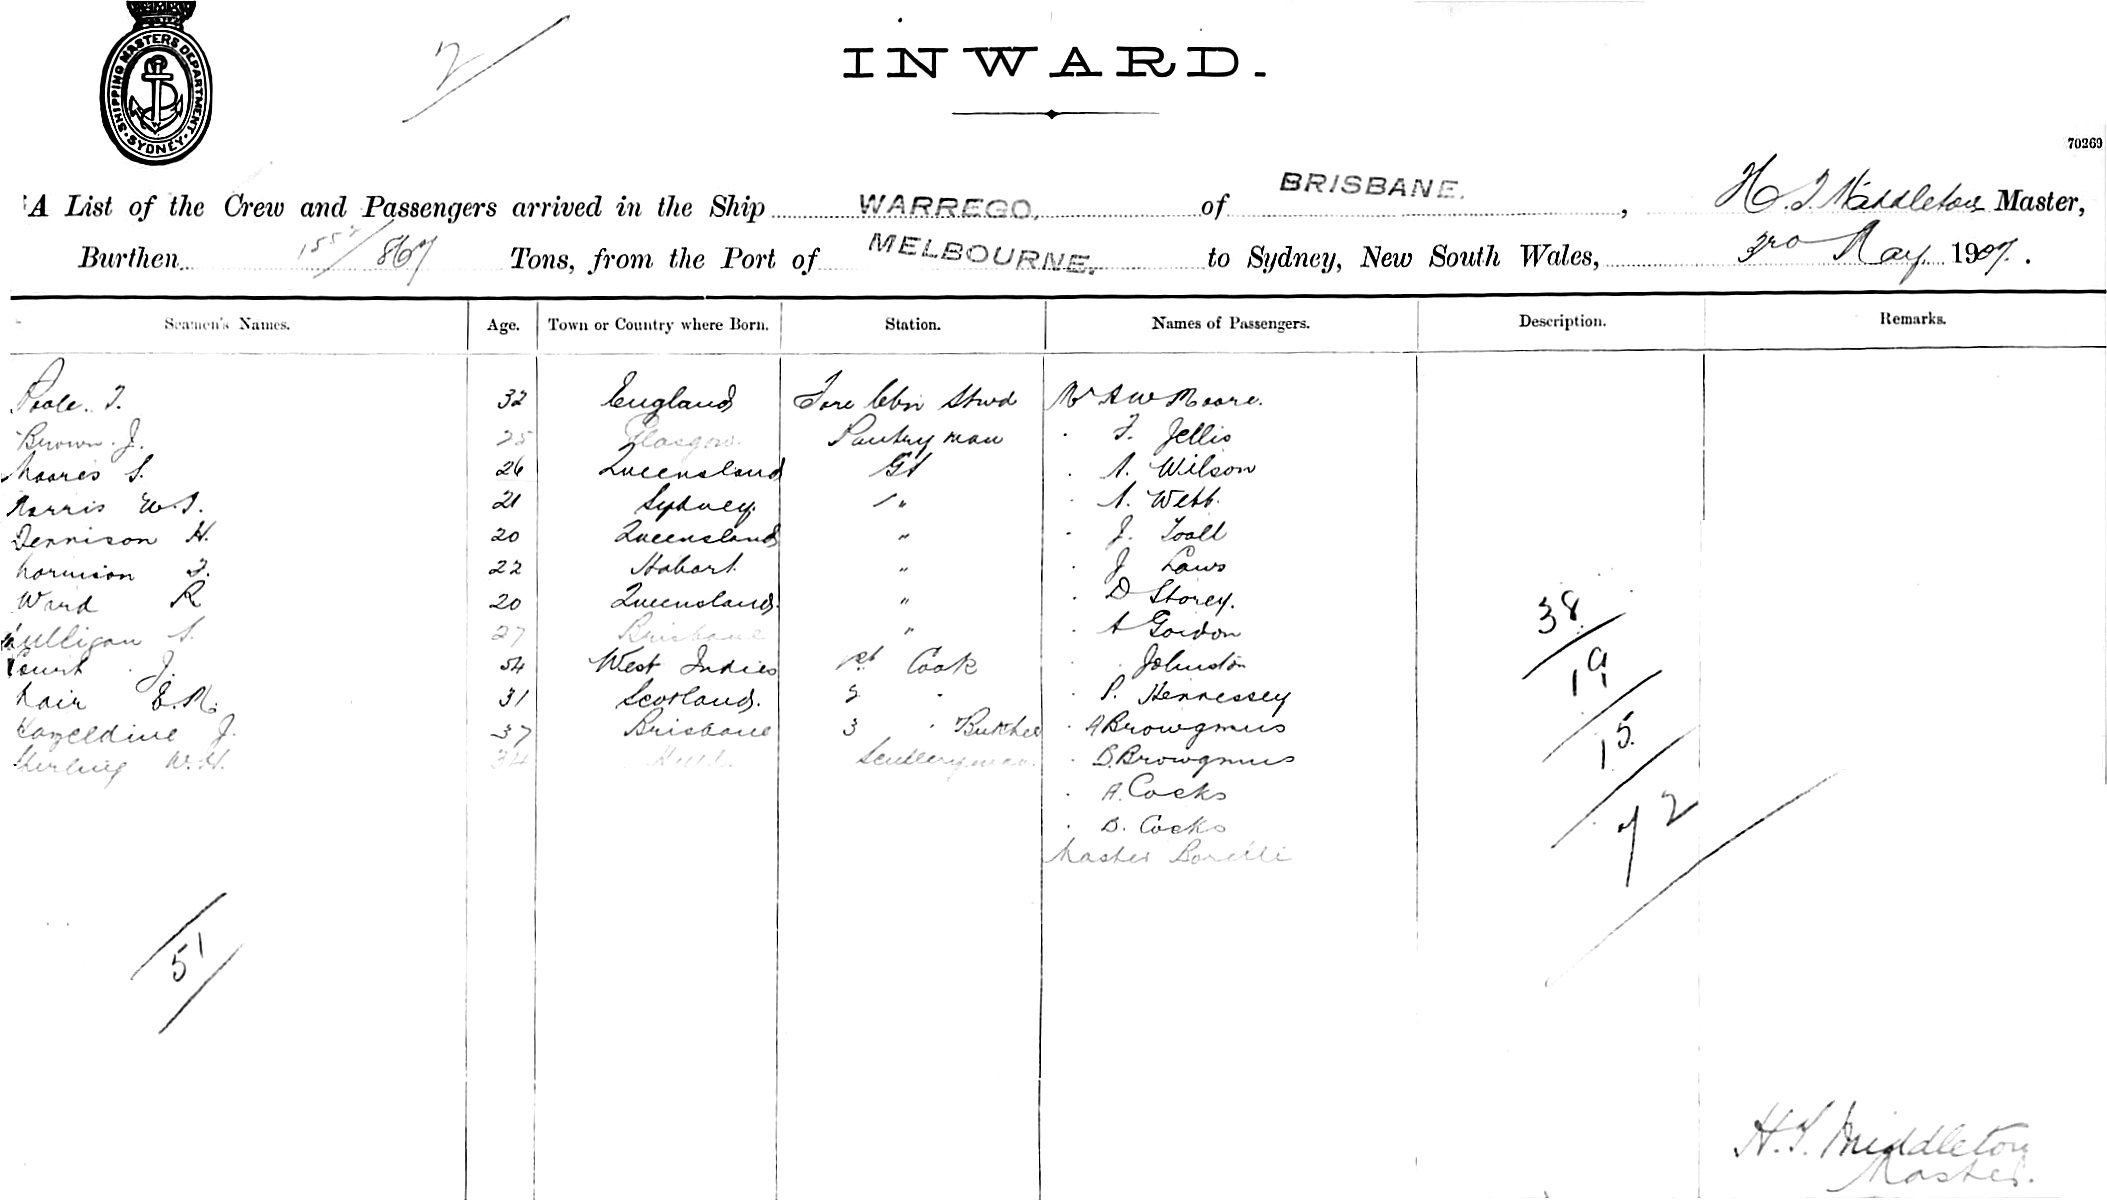 2
INWARD.
SHIPPING MASTERS DEPARTMENT. SYDNEY.
70269
A List of the Crew and Passengers arrived in the Ship WARREGO. of BRISBANE. , Middleton Master,
Burthen 1552/867 Tons, from the Port of MELBOURNE. to Sydney, New South Wales, 3rd May 1907.
Seamen's Names. Age. Town or Country where Born. Station. Names of Passengers. Description. Remarks.
Poole. T. 32 England Fore Cbn Stwd Mr A W Moore.
Brown. J. 25 Glasgow. Pantryman . F. Jellis
Moores S. 26 Queensland GS . A. Wilson
Norris W.T. 21 Sydney. " . A. Webb.
Dennison H. 20 Queensland " . J.
22 Hobart " . J Laws
Ward R 20 Queensland. " . D Storey.
27 Brisbane " . A Gordon 38
Court J. 54 West Indies 1st Cook . Johnston 19
Nair E.M. 31 Scotland. 2 " . P. Hennessey
Hazeldine J. 37 Brisbane 3 " Butcher . A Browgmus 15
W.H. 34 Hull. Scullery man. . B. Browgmus
. A. Cocks 72
. B. Cocks
Master Borelli
51
H.T. Middleton
Master.